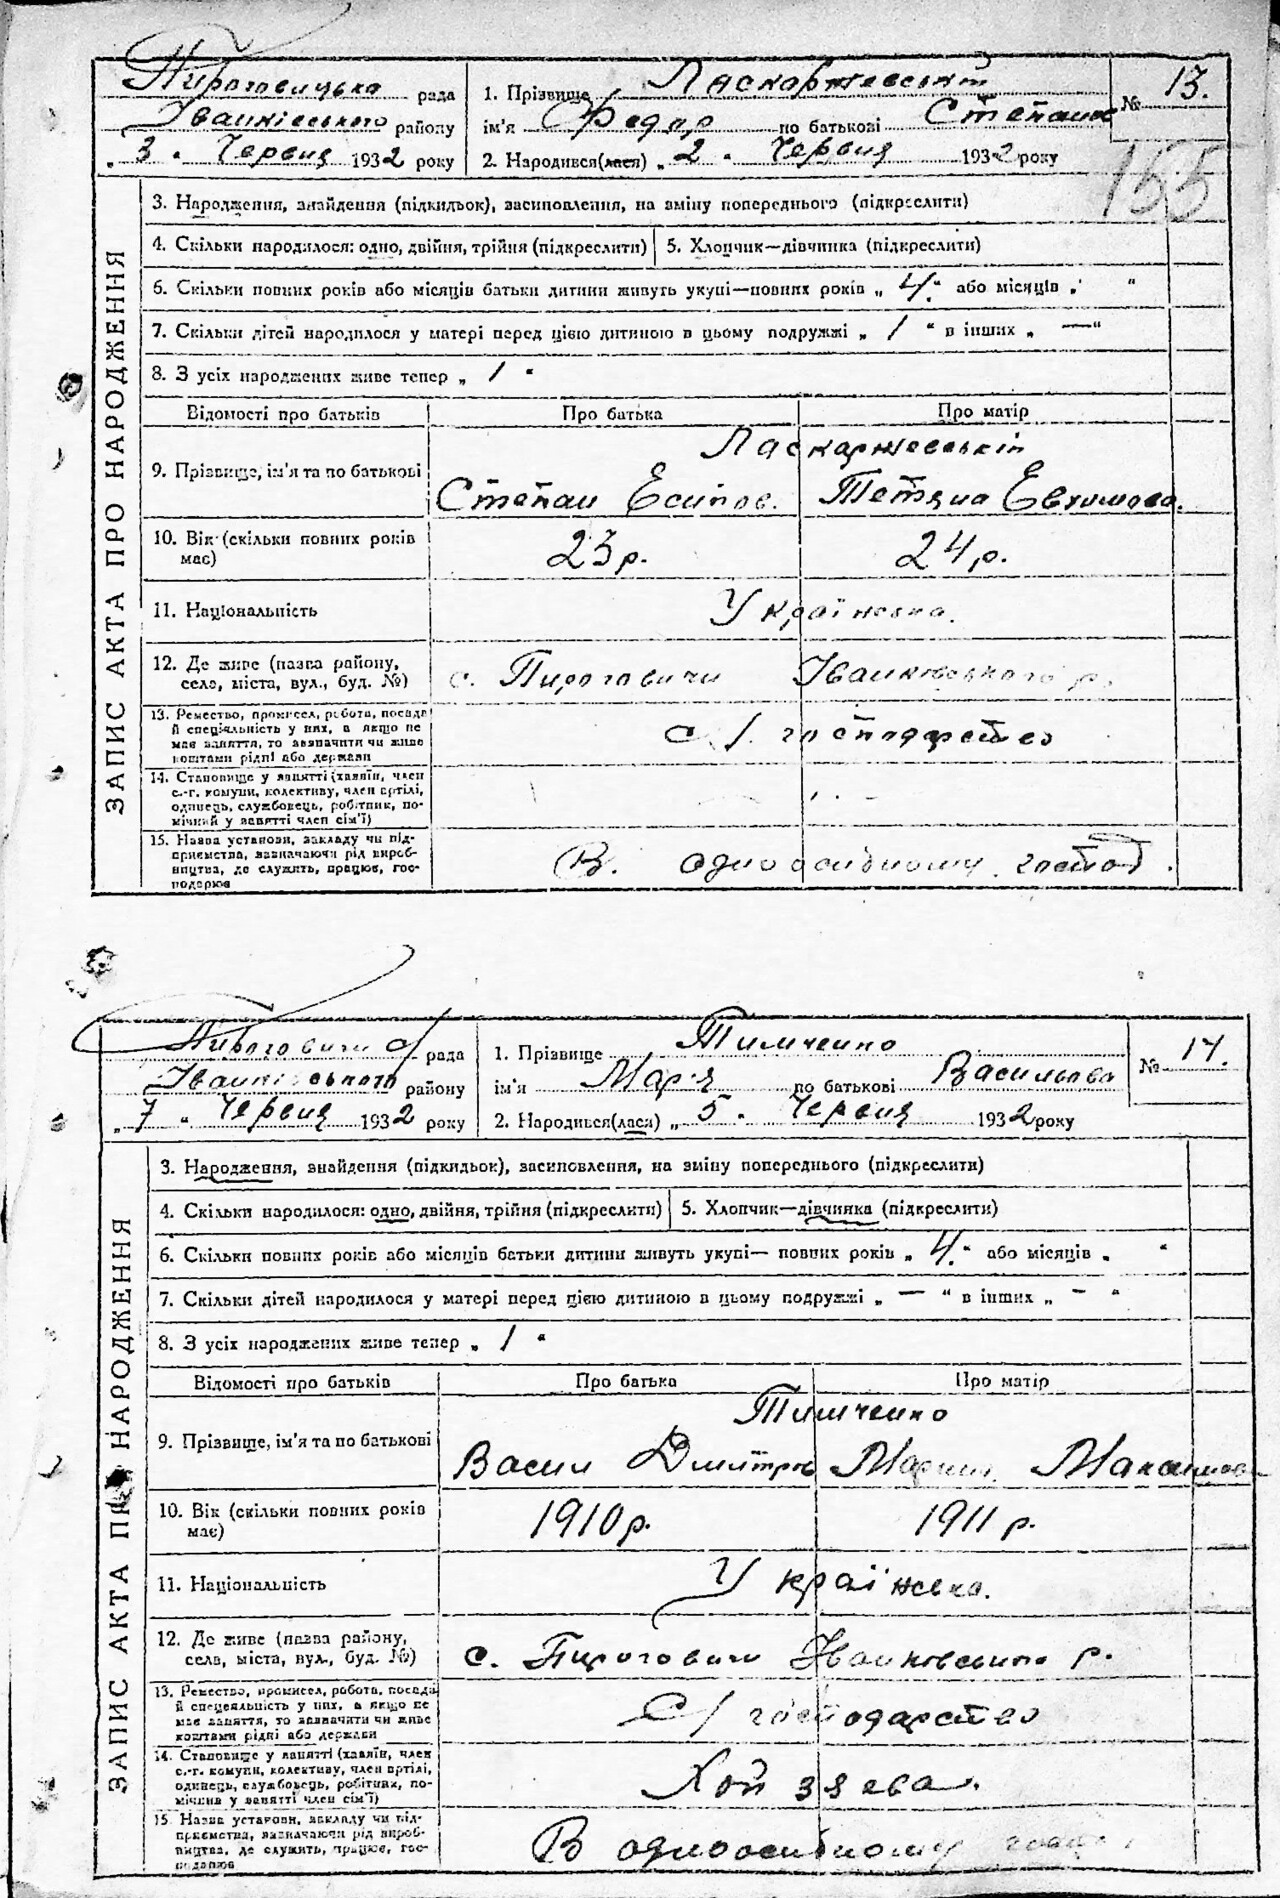 Пироговицька рада
Іванківського району
„ 3 " Червня 1932 року
1. Прізвище Ласкаржевський
ім'я Федір по батькові Степанов
2. Народився(лася) „ 2 " Червня 1932 року
№ 13.
155
ЗАПИС АКТА ПРО НАРОДЖЕННЯ
3. Народження, знайдення (підкидьок), засиновлення, на зміну попереднього (підкреслити)
4. Скільки народилося: одно, двійня, трійня (підкреслити) 5. Хлопчик—дівчинка (підкреслити)
6. Скільки повних років або місяців батьки дитини живуть укупі—повних років „ 4 " або місяців „ "
7. Скільки дітей народилося у матері перед цією дитиною в цьому подружжі „ 1 " в інших „ — "
8. З усіх народжених живе тепер „ 1 "
Відомості про батьків Про батька Про матір
Ласкаржевські
9. Прізвище, ім'я та по батькові Степан Есипов. Тетяна Евхимова.
10. Вік (скільки повних років 23 р. 24 р.
має)
11. Національність Українська.
12. Де живе (назва району, с. Пироговичи Іванківського р.
село, міста, вул., буд. №)
13. Ремество, промисел, робота, посада
й спеціяльність у них, а якщо не с/господарство
має заняття, то зазначити чи живе
коштами рідні або держави
14. Становище у занятті (хазяїн, член
с.-г. комуни, колективу, член артілі,
одинець, службовець, робітник, по-
мічний у занятті член сім'ї)
15. Назва установи, закладу чи під-
приємства, зазначаючи рід вироб- В. одноосибному господ.
ництва, де служить, працює, гос-
подарює
Пироговичи с/рада
Іванківського району
„ 7 " Червня 1932 року
1. Прізвище Тимченко
ім'я Мар'я по батькові Васильова
2. Народився(лася) „ 5 " Червня 1932 року
№ 14.
ЗАПИС АКТА ПРО НАРОДЖЕННЯ
3. Народження, знайдення (підкидьок), засиновлення, на зміну попереднього (підкреслити)
4. Скільки народилося: одно, двійня, трійня (підкреслити) 5. Хлопчик—дівчинка (підкреслити)
6. Скільки повних років або місяців батьки дитини живуть укупі— повних років „ 4 " або місяців „ "
7. Скільки дітей народилося у матері перед цією дитиною в цьому подружжі „ — " в інших „ — "
8. З усіх народжених живе тепер „ 1 "
Відомості про батьків Про батька Про матір
Тимченко
9. Прізвище, ім'я та по батькові Васил Дмитров Максимова
10. Вік (скільки повних років 1910 р. 1911 р.
має)
11. Національність Українська.
12. Де живе (назва району, с. Пироговичи Іванковського р.
село, міста, вул., буд. №)
13. Ремество, промисел, робота, посада
й спеціяльність у них, а якщо не С/господарство
має заняття, то зазначити чи живе
коштами рідні або держави
14. Становище у занятті (хазяїн, член
с.-г. комуни, колективу, член артілі,
одинець, службовець, робітник, по-
мічний у занятті член сім'ї)
15. Назва установи, закладу чи під-
приємства, зазначаючи рід вироб- В одноосибному
ництва, де служить, працює, гос-
подарює